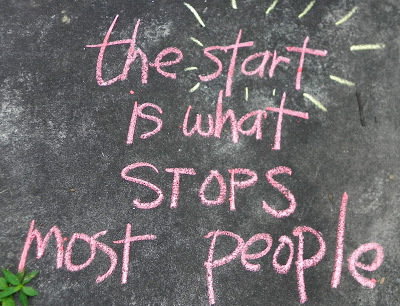 the start
is what
STOPS
most people